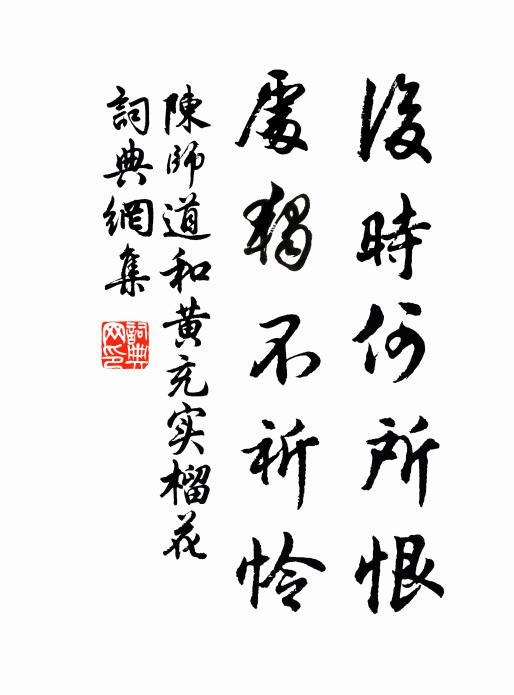 後時何所恨
處獨不祈怜
陳師道和黄充实榴花
詞典網集
詞典网印